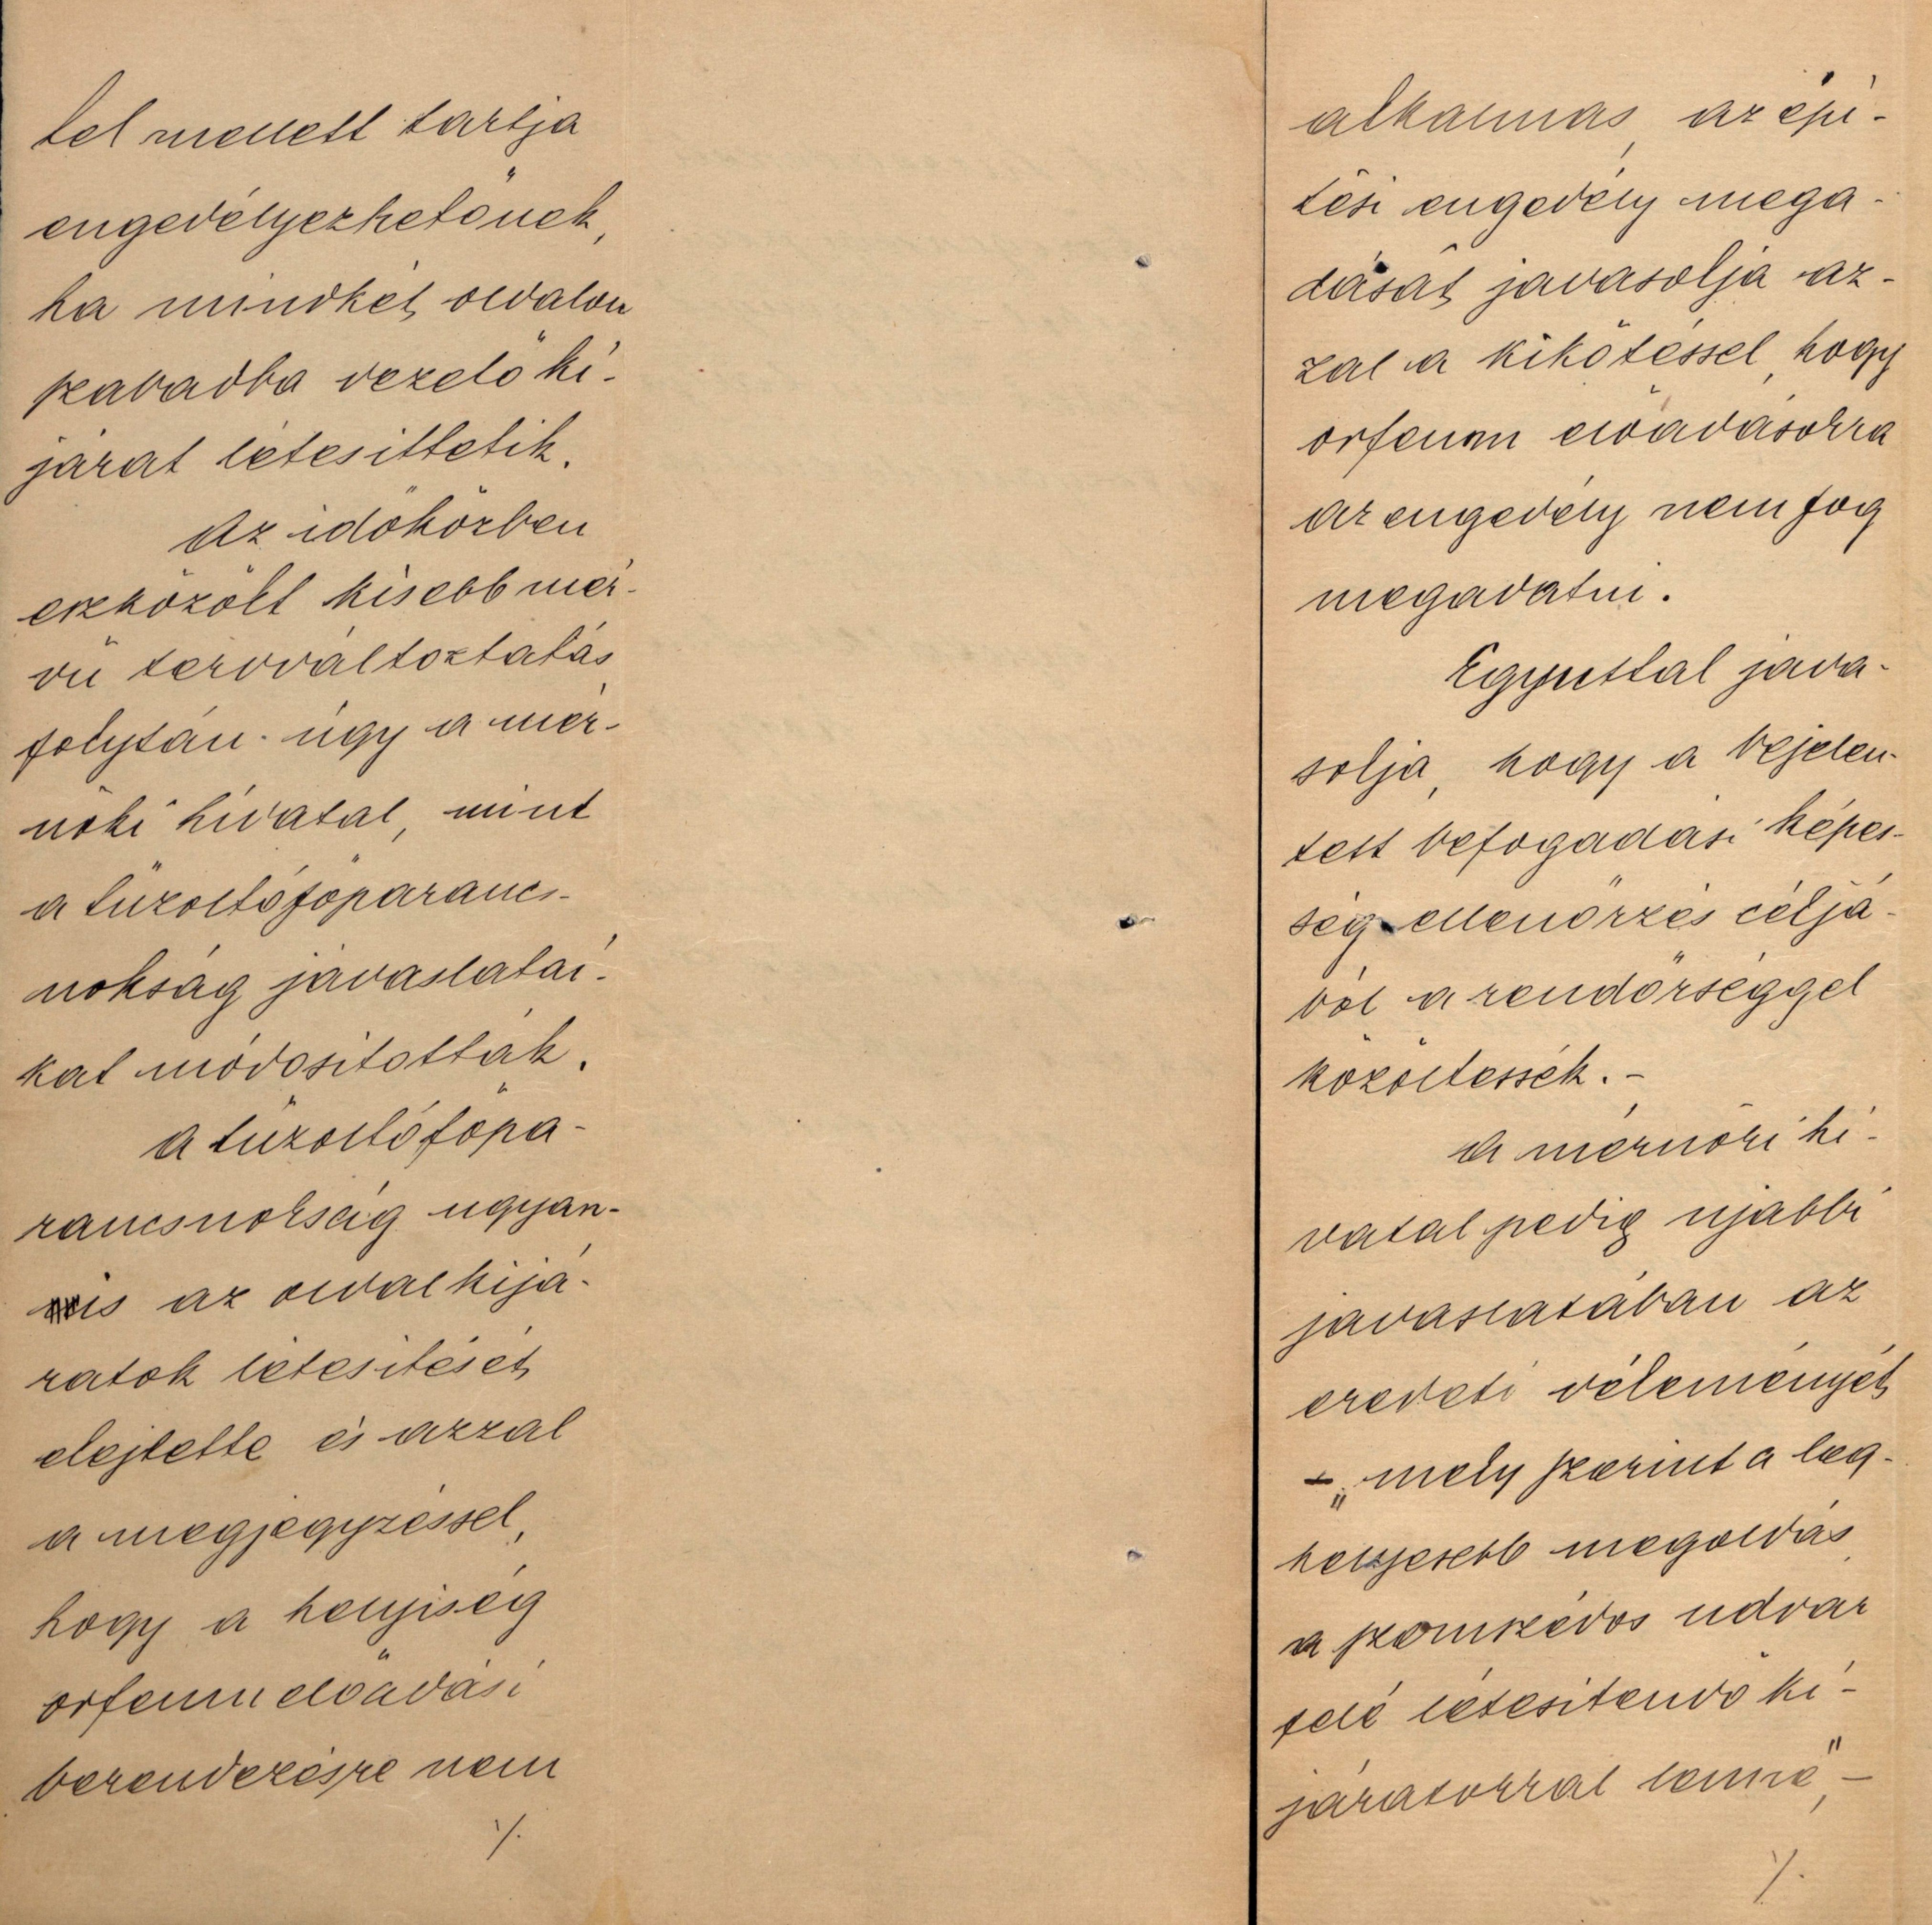 tel mellett tartja
engedélyezhetőnek,
ha mindkét oldalon
szabadba vezető ki-
járat létesittetik.
Az időközben
eszközölt kisebb mér-
vü tervváltoztatás
folytán úgy a mér-
nöki hivatal, mint
a tüzoltófőparancs-
nokság javaslatai-
kat módositották.
A tűzoltófőpa-
rancsnokság ugyan-
is az oldalkijá-
ratok létesitését
elejtette és azzal
a megjegyzéssel,
hogy a helyiség
orfeum előadási
berendezésre nem
./.
alkalmas, az épi-
tési engedély mega-
dását javasolja az-
zal a kikötéssel, hogy
orfeum előadásokra
az engedély nem fog
megadatni.
Egyuttal java-
solja, hogy a bejelen-
tett befogadási képes-
ség ellenőrzés céljá-
ból a rendőrséggel
közöltessék. -
A mérnöki hi-
vatal pedig ujabbi
javaslatában az
eredeti véleményét
- „mely szerint a leg-
helyesebb megoldás
a szomszédos udvar
felé létesitendő ki-
járatokkal lenne", -
./.